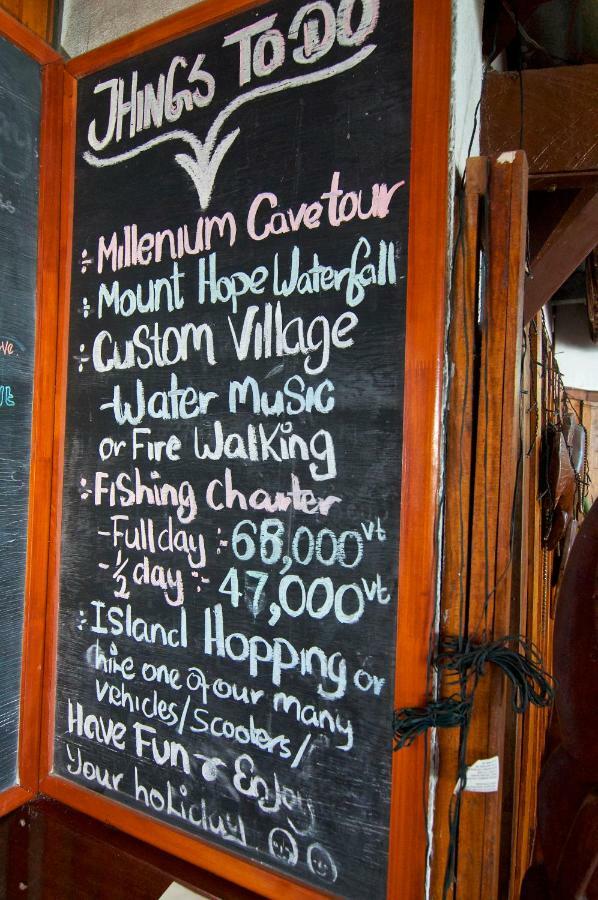 THINGS TO DO
÷ Millenium Cave tour
÷ Mount Hope Waterfall
÷ Custom Village
- Water Music
or Fire Walking
÷ Fishing charter
- Full day :- 68,000 vt
- 1/2 day :- 47,000 vt
÷ Island Hopping or
hire one of our many
vehicles/scooters/
Have Fun & Enjoy
Your holiday